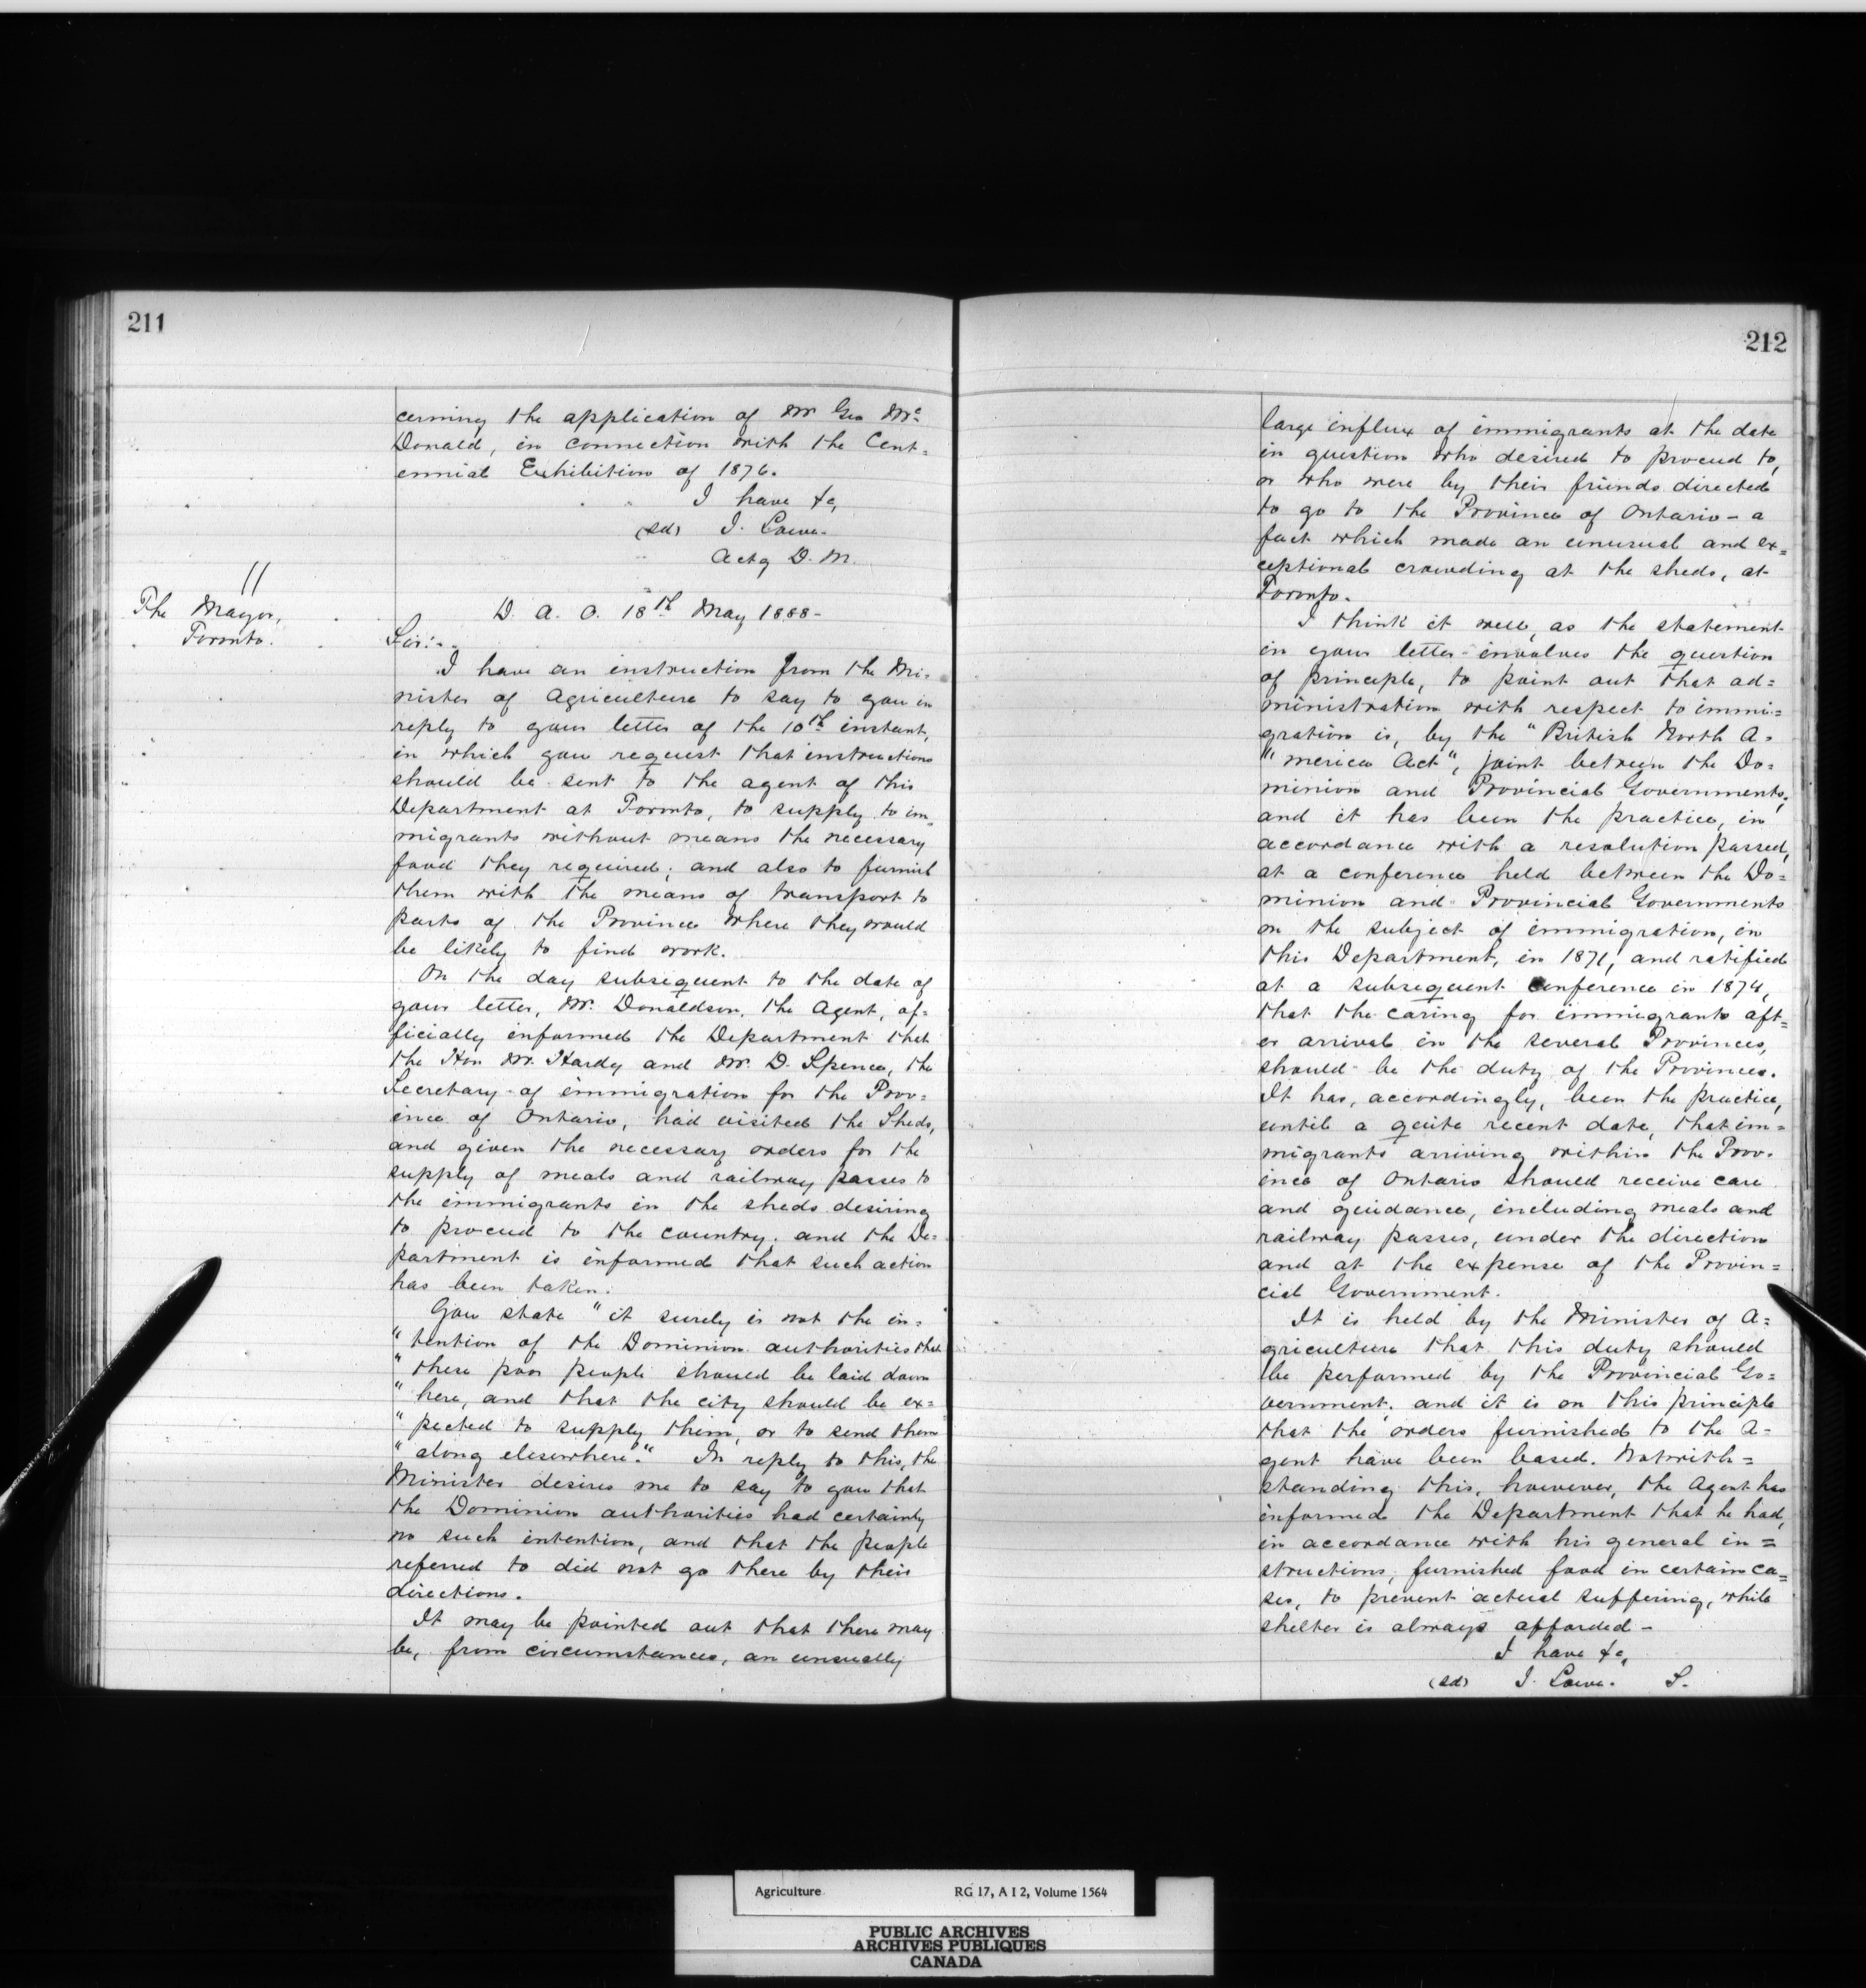 211
cerning the application of Mr Geo Mc
Donald, in connection with the Cent=
ennial Exhibition of 1876.
I have &c,
(sd) J. Lowe.
Actg D. M.
//
The Mayor,
Toronto.
D. A. O. 18th May 1888-
Sir:-
I have an instruction from the Mi=
nister of Agriculture to say to you in
reply to your letter of the 10th instant,
in which you request that instructions
should be sent to the agent of this
Department at Toronto, to supply to im=
migrants without means the necessary
food they required; and also to furnish
them with the means of transport to
parts of the Province where they would
be likely to find work.
On the day subsequent to the date of
your letter, Mr. Donaldson, the Agent, of=
ficially informed the Department that
the Hon Mr. Hardy and Mr. D. Spence, the
Secretary of immigration for the Prov=
ince of Ontario, had visited the Sheds,
and given the necessary orders for the
supply of meals and railway passes to
the immigrants in the sheds desiring
to proceed to the country. and the De=
partment is informed that such action
has been taken.
You state "it surely is not the in=
"tention of the Dominion authorities that
"these poor people should be laid down
"here, and that the city should be ex=
"pected to supply them, or to send them
"along elsewhere." In reply to this, the
Minister desires me to say to you that
the Dominion authorities had certainly
no such intention, and that the people
referred to did not go there by their
directions.
It may be pointed out that there may
be, from circumstances, an unusually
212
large influx of immigrants at the date
in question who desired to proceed to,
or who were by their friends directed
to go to the Province of Ontario - a
fact which made an unusual and ex=
ceptional crowding at the sheds, at
Toronto.
I think it well, as the statement
in your letter involves the question
of principle, to point out that ad=
ministration with respect to immi=
gration is, by the "British North A=
"merica Act", joint between the Do=
minion and Provincial Governments,
and it has been the practice, in
accordance with a resolution passed,
at a conference held between the Do=
minion and Provincial Governments
on the subject of immigration, in
this Department, in 1871, and ratified
at a subsequent conference in 1874,
that the caring for immigrants aft=
er arrival in the several Provinces,
should be the duty of the Provinces.
It has, accordingly, been the practice,
until a quite recent date, that im=
migrants arriving within the Prov=
ince of Ontario should receive care
and guidance, including meals and
railway passes, under the direction
and at the expense of the Provin=
cial Government.
It is held by the Minister of A=
griculture that this duty should
be performed by the Provincial Go=
vernment; and it is on this principle
that the orders furnished to the A=
gent have been based. Notwith=
standing this, however, the Agent has
informed the Department that he had,
in accordance with his general in=
structions, furnished food in certain ca=
ses, to prevent actual suffering, while
shelter is always afforded -
I have &c,
(sd) J. Lowe. S.
Agriculture RG 17, A I 2, Volume 1564
PUBLIC ARCHIVES
ARCHIVES PUBLIQUES
CANADA